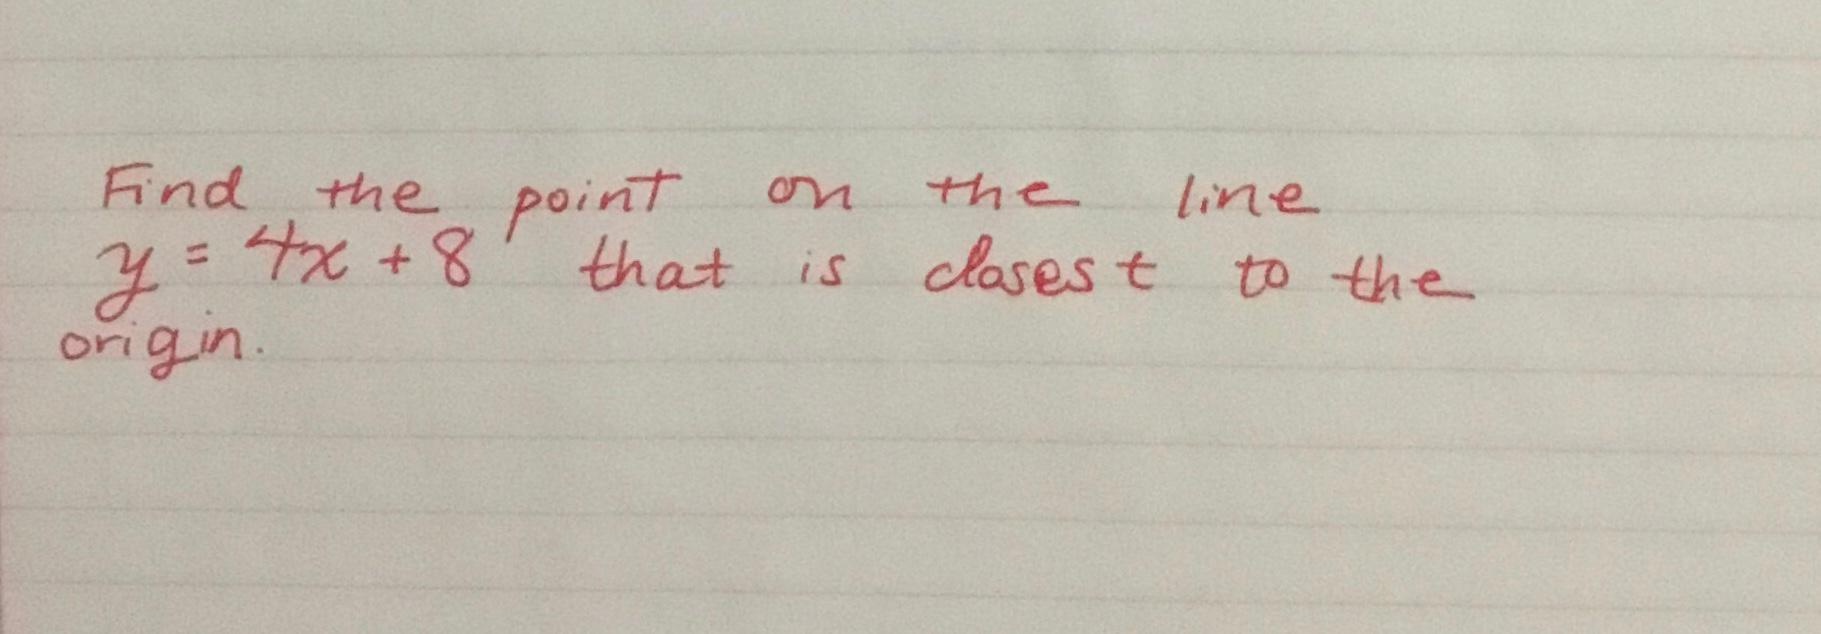 Find the point on the line
y = 4x + 8 that is closest to the
origin.